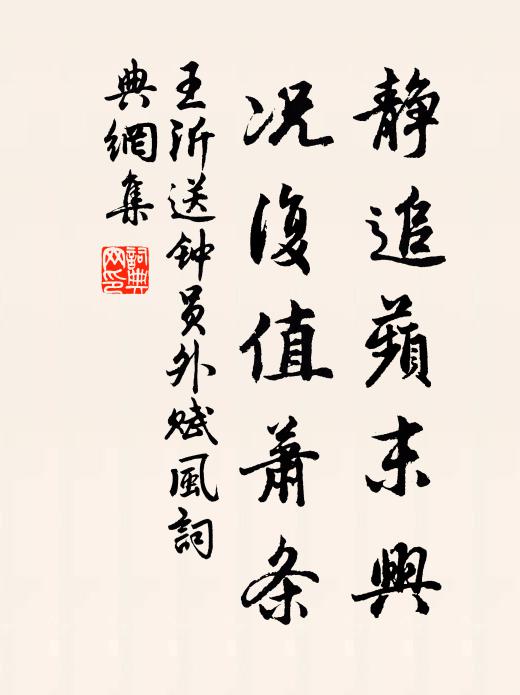 静追蘋末興
况復值蕭条
王沂送钟員外赋風詞
典網集
詞典
网印